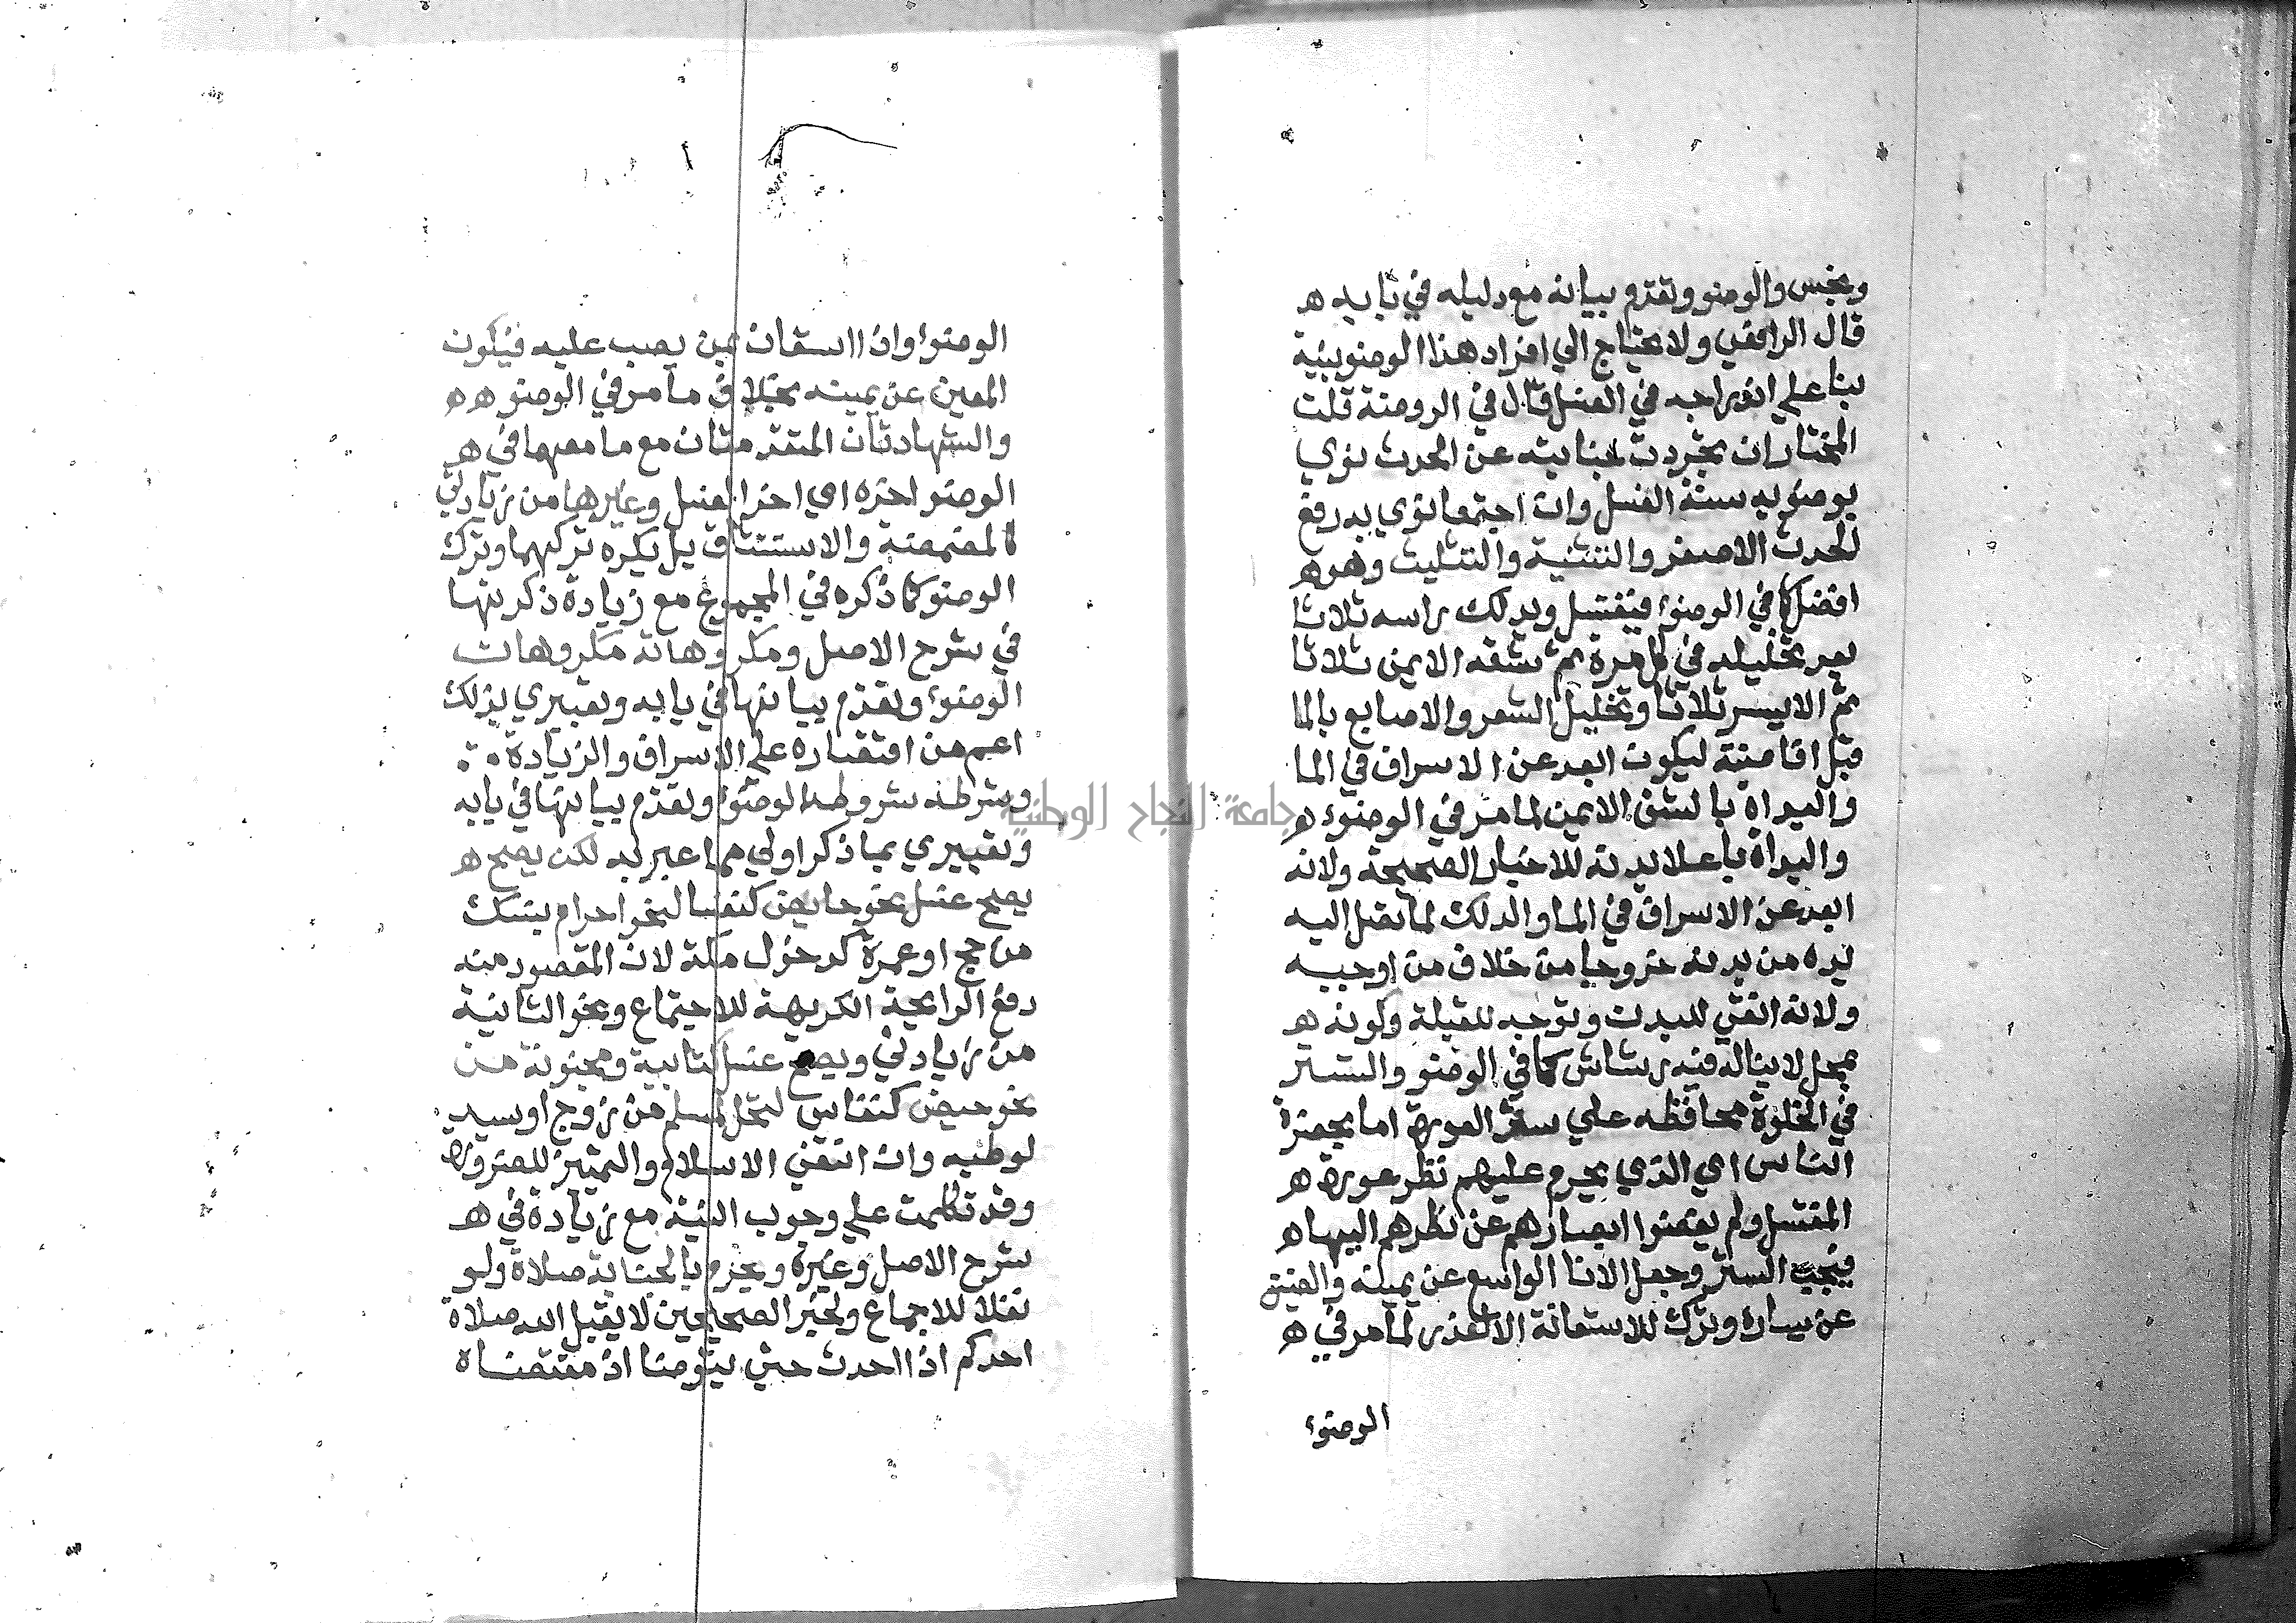 ونجس والوضو وتقدم بيانه مع دليله في بابه ه
قال الرافعي ولا يحتاج الي افراد هذا الوضو بنية
بنا علي اندراجه في الغسل قال في الروضة قلت
المختار ان تجردت جنابته عن الحدث نوي
بوضوئه سنة الغسل وان اجتمعا نوي به رفع
الحدث الاصغر والتثنية والتثليث وهو ه
افضل كما في الوضوء فيغسل ويدلك راسه ثلاثا
بعد تخليله في كل مرة ثم شقه الايمن ثلاثا
ثم الايسر ثلاثا وتخليل الشعر والاصابع بالما
قبل افاضته ليكون ابعد عن الاسراف في الما
والبداة بالشق الايمن لما مر في الوضوء ه
والبداة باعلا بدنه للاخبار الصحيحة ولانه
ابعد عن الاسراف في الما والدلك لما تصل اليه
يده من بدنه خروجا من خلاف من اوجبه
ولانه انقي للبدن وتوجه للقبلة وكونه ه
بمحل لا يناله فيه رشاش كما في الوضو والتستر
في الخلوة محافظه علي ستر العورة اما بحضرة
الناس اي الذي يحرم عليهم نظر عورة ه
المغتسل ولم يغضوا ابصارهم عن نظرهم اليها ه
فيجب الستر وجعل الانا الواسع عن يمينه والضيق
عن يساره وترك للاستعانة الا لعذر لما مر في ه
الوضوء
الوضوء وان استعان بمن يصب عليه فيكون
المعين عن يمينه بخلاف ما مر في الوضو ه ه
والشهادتان المتقدمتان مع ما معهما في ه
الوضو اخره اي اخر الغسل وغيرها من زيادتي
كالمضمضة والاستنشاق بل يكره تركهما وترك
الوضو كما ذكره في المجموع مع زيادة ذكرتها
في شرح الاصل ومكروهاته مكروهات
الوضوء وتقدم بيانها في بابه وتعبيري بذلك
اعم من اقتصاره علي الاسراف والزيادة
وشرطه شروط الوضوء وتقدم بيانها في بابه
وتعبيري بما ذكر اولي مما عبر به لكن يصح ه
يصح غسل نحو حايض كنفسا لنحو احرام بنسك
من حج او عمرة كدخول مكة لان المقصود منه
دفع الرايحة الكريهة للاجتماع ونحو الثانية
من زيادتي ويصح غسل كتابية ومجنونة من
نحو حيض كنفاس لتحل لمسلم من زوج او سيد
لوطئه وان انتفي الاسلام والتمييز للضرورة
وقد تكلمت علي وجوب النية مع زيادة في ه
شرح الاصل وغيره ويحرم بالجنابة صلاة ولو
نفلا للاجماع ولخبر الصحيحين لا يقبل الله صلاة
احدكم اذا احدث حتي يتوضا اذ مقتضاه
جامعة النجاح الوطنية